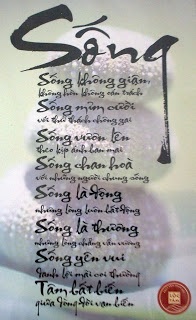 Sống
Sống không giận,
không hờn không oán trách
Sống mỉm cười
với thử thách chông gai
Sống vươn lên
theo kịp ánh ban mai
Sống chan hoà
với những người chung sống
Sống là động
nhưng lòng luôn bất động
Sống là thương
nhưng lòng chẳng vấn vương
Sống yên vui
danh lợi mãi coi thường
Tâm bất biến
giữa dòng đời vạn biến